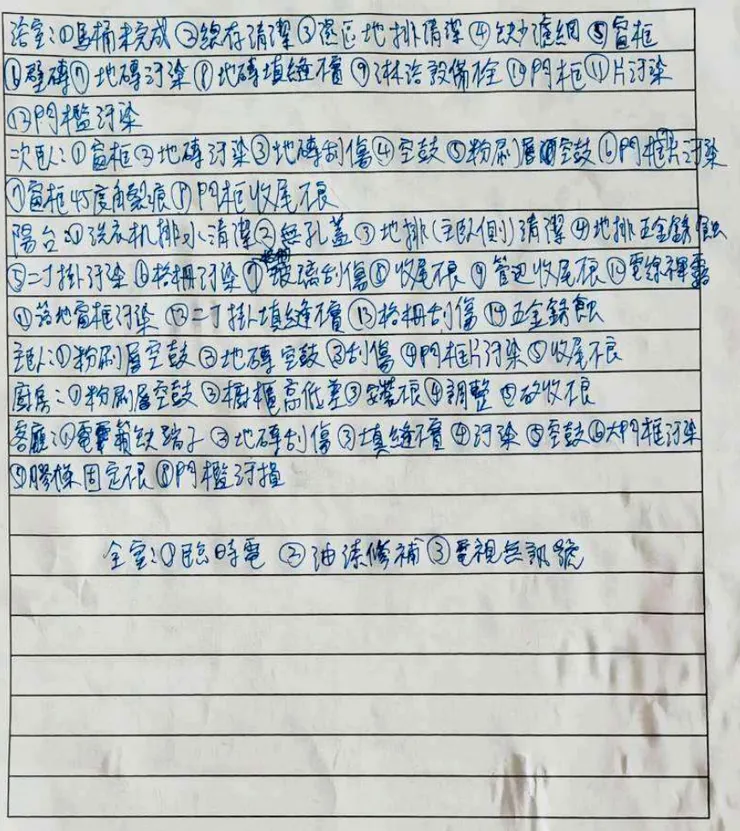 浴室:①馬桶未完成 ②總存清潔 ③濕區地排清潔 ④缺少濾網 ⑤窗框
⑥壁磚 ⑦地磚汙染 ⑧地磚填縫不實 ⑨淋浴設備不全 ⑩門框 ⑪片汙染
⑬門檻汙染
次臥:①窗框 ②地磚汙染 ③地磚刮傷 ④空鼓 ⑤粉刷層空鼓 ⑥門框片汙染
⑦窗框45度角裂痕 ⑧門框收尾不良
陽台:①洗衣机排水清潔 ②無孔蓋 ③地排(主臥側)清潔 ④地排五金銹蝕
⑤二丁掛汙染 ⑥格柵汙染 ⑦玻璃刮傷 ⑧收尾不良 ⑨管边收尾不良 ⑩電線裸露
⑪落地窗框汙染 ⑫二丁掛填縫不實 ⑬格柵刮傷 ⑭五金銹蝕
主臥:①粉刷層空鼓 ②地磚空鼓 ③刮傷 ④門框片汙染 ⑤收尾不良
廚房:①粉刷層空鼓 ②櫥櫃高低差 ③安裝不良 ④調整 ⑤矽收不良
客廳:①電箱缺端子 ②地磚刮傷 ③填縫不實 ④汙染 ⑤空鼓 ⑥大門框汙染
⑦膠條固定不良 ⑧門檻汙損
全室:①臨時電 ②油漆修補 ③電視無訊號